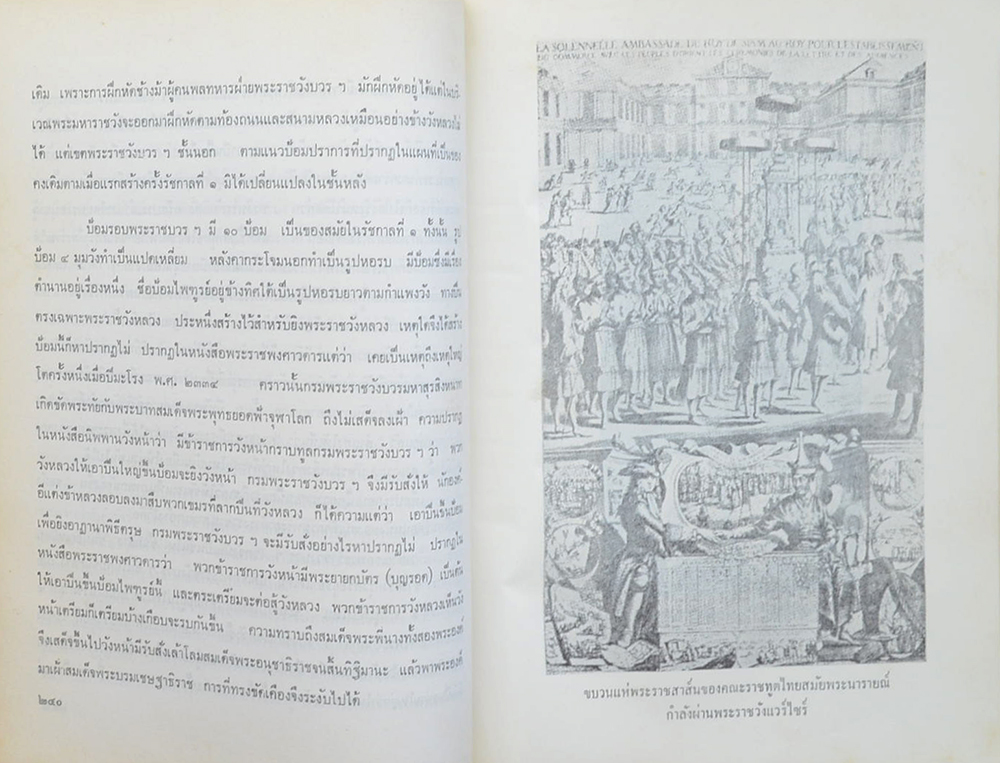 เดิม เพราะการฝึกหัดช้างม้าผู้คนพลทหารฝ่ายพระราชวังบวร ฯ มักฝึกหัดอยู่ได้แต่ในบริ
เวณพระมหาราชวังจะออกมาฝึกหัดตามท้องถนนและสนามหลวงเหมือนอย่างข้างวังหลวงไม่
ได้ แต่เขตพระราชวังบวร ฯ ชั้นนอก ตามแนวป้อมปราการที่ปรากฏในแผนที่เป็นของ
คงเดิมตามเมื่อแรกสร้างครั้งรัชกาลที่ ๑ มิได้เปลี่ยนแปลงในชั้นหลัง
ป้อมรอบพระราชบวร ฯ มี ๑๐ ป้อม เป็นของสมัยในรัชกาลที่ ๑ ทั้งนั้น รูป
ป้อม ๔ มุมวังทำเป็นแปดเหลี่ยม หลังคากระโจมนอกทำเป็นรูปหอรบ มีป้อมซึ่งมีเรื่อง
ตำนานอยู่เรื่องหนึ่ง ชื่อป้อมไพฑูรย์อยู่ข้างทิศใต้เป็นรูปหอรบยาวตามกำแพงวัง ทางปืน
ตรงเฉพาะพระราชวังหลวง ประหนึ่งสร้างไว้สำหรับยิงพระราชวังหลวง เหตุใดจึงได้สร้าง
ป้อมนี้ก็หาปรากฏไม่ ปรากฏในหนังสือพระราชพงศาวดารแต่ว่า เคยเป็นเหตุถึงเหตุใหญ่
โตครั้งหนึ่งเมื่อปีมะโรง พ.ศ. ๒๓๓๔ คราวนั้นกรมพระราชวังบวรมหาสุรสิงหนาท
เกิดขัดพระทัยกับพระบาทสมเด็จพระพุทธยอดฟ้าจุฬาโลก ถึงไม่เสด็จลงเฝ้า ความปรากฏ
ในหนังสือนิพพานวังหน้าว่า มีข้าราชการวังหน้ากราบทูลกรมพระราชวังบวร ฯ ว่า พวก
วังหลวงให้เอาปืนใหญ่ขึ้นป้อมจะยิงวังหน้า กรมพระราชวังบวร ฯ จึงมีรับสั่งให้ นักองค์
อีแต่งข้าหลวงลอบลงมาสืบพวกเขมรที่ลากปืนที่วังหลวง ก็ได้ความแต่ว่า เอาปืนขึ้นป้อม
เพื่อยิงอาฏานาพิธีตรุษ กรมพระราชวังบวร ฯ จะมีรับสั่งอย่างไรหาปรากฏไม่ ปรากฏใน
หนังสือพระราชพงศาวดารว่า พวกข้าราชการวังหน้ามีพระยายกบัตร (บุญรอด) เป็นต้น
ให้เอาปืนขึ้นป้อมไพฑูรย์นี้ และตระเตรียมจะต่อสู้วังหลวง พวกข้าราชการวังหลวงเห็นวัง
หน้าเตรียมก็เตรียมบ้างเกือบจะรบกันขึ้น ความทราบถึงสมเด็จพระพี่นางทั้งสองพระองค์
จึงเสด็จขึ้นไปวังหน้ามีรับสั่งเล้าโลมสมเด็จพระอนุชาธิราชจนสิ้นทิฐิมานะ แล้วพาพระองค์
มาเฝ้าสมเด็จพระบรมเชษฐาธิราช การที่ทรงขัดเคืองจึงระงับไปได้
๒๔๐
LA SOLENNELLE AMBASSADE DU ROY DE SIAM AU ROY POUR L'ESTABLISSEMENT
DU COMMERCE AVEC CES PEUPLES D'ORIENT LES CEREMONIES DE LA LETTRE ET DES AUDIENCES
ขบวนแห่พระราชสาส์นของคณะราชทูตไทยสมัยพระนารายณ์
กำลังผ่านพระราชวังแวร์ไซร์